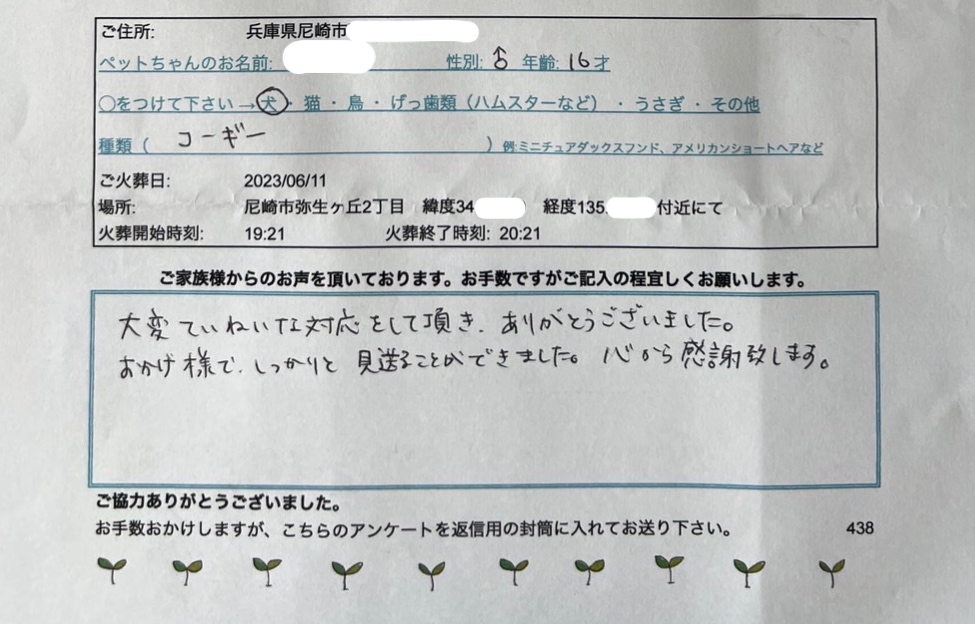 ご住所: 兵庫県尼崎市
ペットちゃんのお名前: 性別: ♂ 年齢: 16才
○をつけて下さい→犬・猫・鳥・げっ歯類（ハムスターなど）・うさぎ・その他
種類（ コーギー ）例:ミニチュアダックスフンド、アメリカンショートヘアなど
ご火葬日: 2023/06/11
場所: 尼崎市弥生ヶ丘2丁目 緯度34 経度135. 付近にて
火葬開始時刻: 19:21 火葬終了時刻: 20:21
ご家族様からのお声を頂いております。お手数ですがご記入の程宜しくお願いします。
大変ていねいな対応をして頂き、ありがとうございました。
おかげ様で、しっかりと見送ることができました。心から感謝致します。
ご協力ありがとうございました。
お手数おかけしますが、こちらのアンケートを返信用の封筒に入れてお送り下さい。 438